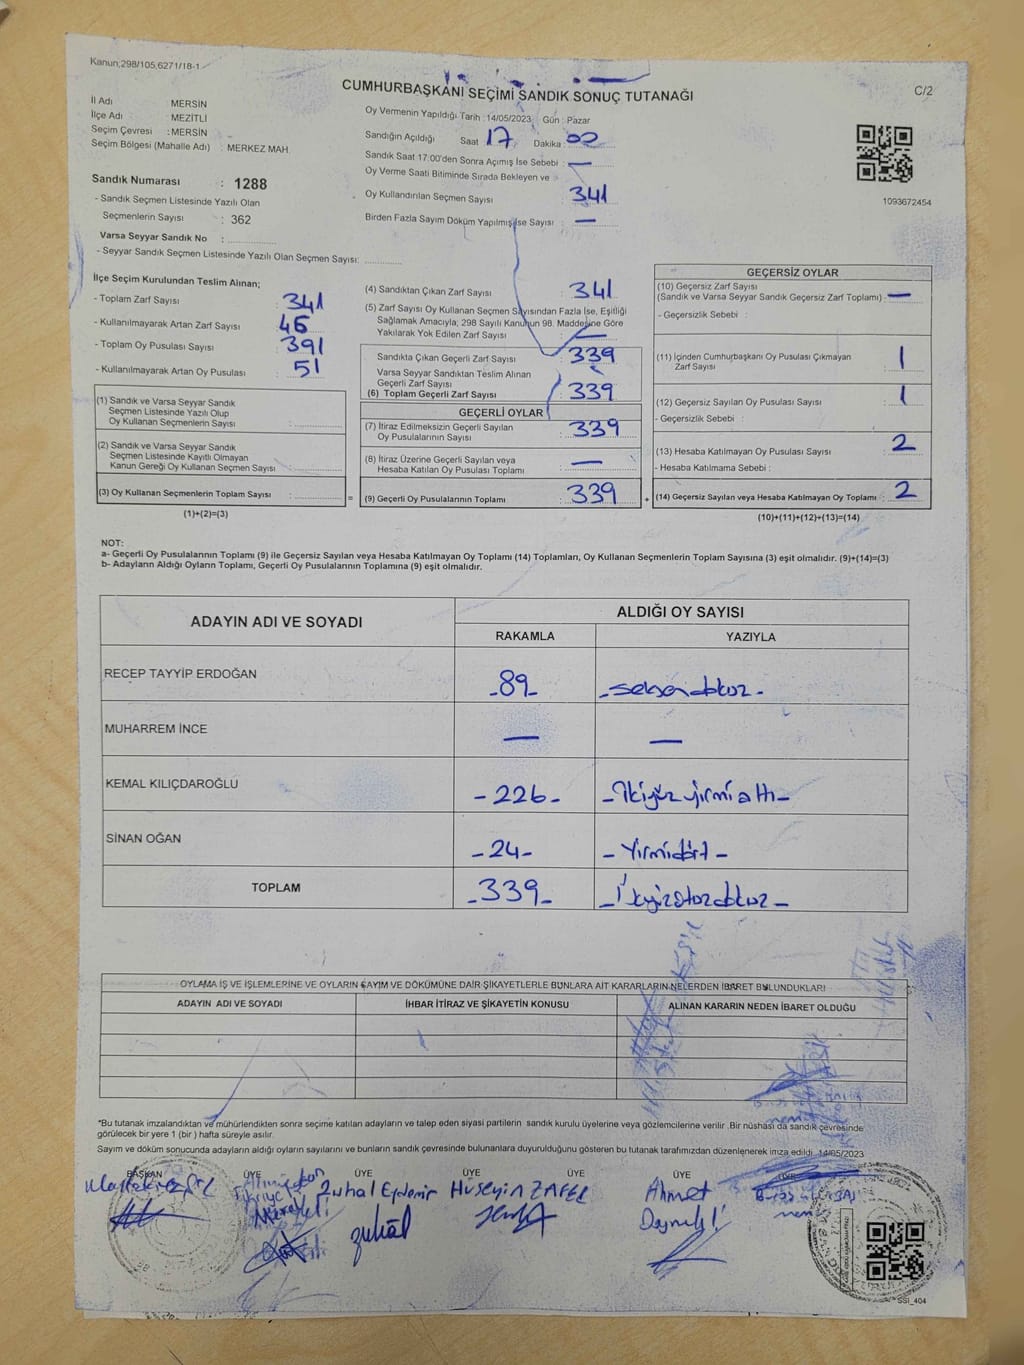 Kanun;298/105,6271/18-1
CUMHURBAŞKANI SEÇİMİ SANDIK SONUÇ TUTANAĞI
C/2
İl Adı MERSİN
İlçe Adı MEZİTLİ
Seçim Çevresi : MERSİN
Seçim Bölgesi (Mahalle Adı) : MERKEZ MAH.
Oy Vermenin Yapıldığı Tarih : 14/05/2023 Gün : Pazar
Sandığın Açıldığı Saat 17 Dakika : 02
Sandık Saat 17:00'den Sonra Açılmış İse Sebebi : —
Oy Verme Saati Bitiminde Sırada Bekleyen ve
Oy Kullandırılan Seçmen Sayısı 341
Birden Fazla Sayım Döküm Yapılmış İse Sayısı —
1093672454
Sandık Numarası : 1288
- Sandık Seçmen Listesinde Yazılı Olan
Seçmenlerin Sayısı : 362
Varsa Seyyar Sandık No :
- Seyyar Sandık Seçmen Listesinde Yazılı Olan Seçmen Sayısı:
İlçe Seçim Kurulundan Teslim Alınan;
- Toplam Zarf Sayısı : 341
- Kullanılmayarak Artan Zarf Sayısı : 46
- Toplam Oy Pusulası Sayısı : 391
- Kullanılmayarak Artan Oy Pusulası : 51
(1) Sandık ve Varsa Seyyar Sandık
Seçmen Listesinde Yazılı Olup
Oy Kullanan Seçmenlerin Sayısı :
(2) Sandık ve Varsa Seyyar Sandık
Seçmen Listesinde Kayıtlı Olmayan
Kanun Gereği Oy Kullanan Seçmen Sayısı :
(3) Oy Kullanan Seçmenlerin Toplam Sayısı :
(1)+(2)=(3)
(4) Sandıktan Çıkan Zarf Sayısı 341
(5) Zarf Sayısı Oy Kullanan Seçmen Sayısından Fazla İse, Eşitliği
Sağlamak Amacıyla; 298 Sayılı Kanunun 98. Maddesine Göre
Yakılarak Yok Edilen Zarf Sayısı : —
Sandıkta Çıkan Geçerli Zarf Sayısı : 339
Varsa Seyyar Sandıktan Teslim Alınan
Geçerli Zarf Sayısı
(6) Toplam Geçerli Zarf Sayısı : 339
GEÇERLİ OYLAR
(7) İtiraz Edilmeksizin Geçerli Sayılan
Oy Pusulalarının Sayısı : 339
(8) İtiraz Üzerine Geçerli Sayılan veya
Hesaba Katılan Oy Pusulası Toplamı : —
= (9) Geçerli Oy Pusulalarının Toplamı : 339 +
GEÇERSİZ OYLAR
(10) Geçersiz Zarf Sayısı
(Sandık ve Varsa Seyyar Sandık Geçersiz Zarf Toplamı) : —
- Geçersizlik Sebebi :
(11) İçinden Cumhurbaşkanı Oy Pusulası Çıkmayan
Zarf Sayısı : 1
(12) Geçersiz Sayılan Oy Pusulası Sayısı : 1
- Geçersizlik Sebebi :
(13) Hesaba Katılmayan Oy Pusulası Sayısı : 2
- Hesaba Katılmama Sebebi :
(14) Geçersiz Sayılan veya Hesaba Katılmayan Oy Toplamı : 2
(10)+(11)+(12)+(13)=(14)
NOT:
a- Geçerli Oy Pusulalarının Toplamı (9) ile Geçersiz Sayılan veya Hesaba Katılmayan Oy Toplamı (14) Toplamları, Oy Kullanan Seçmenlerin Toplam Sayısına (3) eşit olmalıdır. (9)+(14)=(3)
b- Adayların Aldığı Oyların Toplamı, Geçerli Oy Pusulalarının Toplamına (9) eşit olmalıdır.
ADAYIN ADI VE SOYADI ALDIĞI OY SAYISI
RAKAMLA YAZIYLA
RECEP TAYYİP ERDOĞAN -89- -seksendokuz-
MUHARREM İNCE — —
KEMAL KILIÇDAROĞLU -226- -ikiyüzyirmialtı-
SİNAN OĞAN -24- -Yirmidört-
TOPLAM -339- -İkiyüzotuzdokuz-
OYLAMA İŞ VE İŞLEMLERİNE VE OYLARIN SAYIM VE DÖKÜMÜNE DAİR ŞİKAYETLERLE BUNLARA AİT KARARLARIN NELERDEN İBARET BULUNDUKLARI
ADAYIN ADI VE SOYADI İHBAR İTİRAZ VE ŞİKAYETİN KONUSU ALINAN KARARIN NEDEN İBARET OLDUĞU
*Bu tutanak imzalandıktan ve mühürlendikten sonra seçime katılan adayların ve talep eden siyasi partilerin sandık kurulu üyelerine veya gözlemcilerine verilir .Bir nüshası da sandık çevresinde
görülecek bir yere 1 (bir ) hafta süreyle asılır.
Sayım ve döküm sonucunda adayların aldığı oyların sayılarını ve bunların sandık çevresinde bulunanlara duyurulduğunu gösteren bu tutanak tarafımızdan düzenlenerek imza edildi. 14/05/2023
BAŞKAN ÜYE ÜYE ÜYE ÜYE ÜYE ÜYE
Zuhal Eydemir Hüseyin ZAFER Ahmet
zuhâl
SSI_404